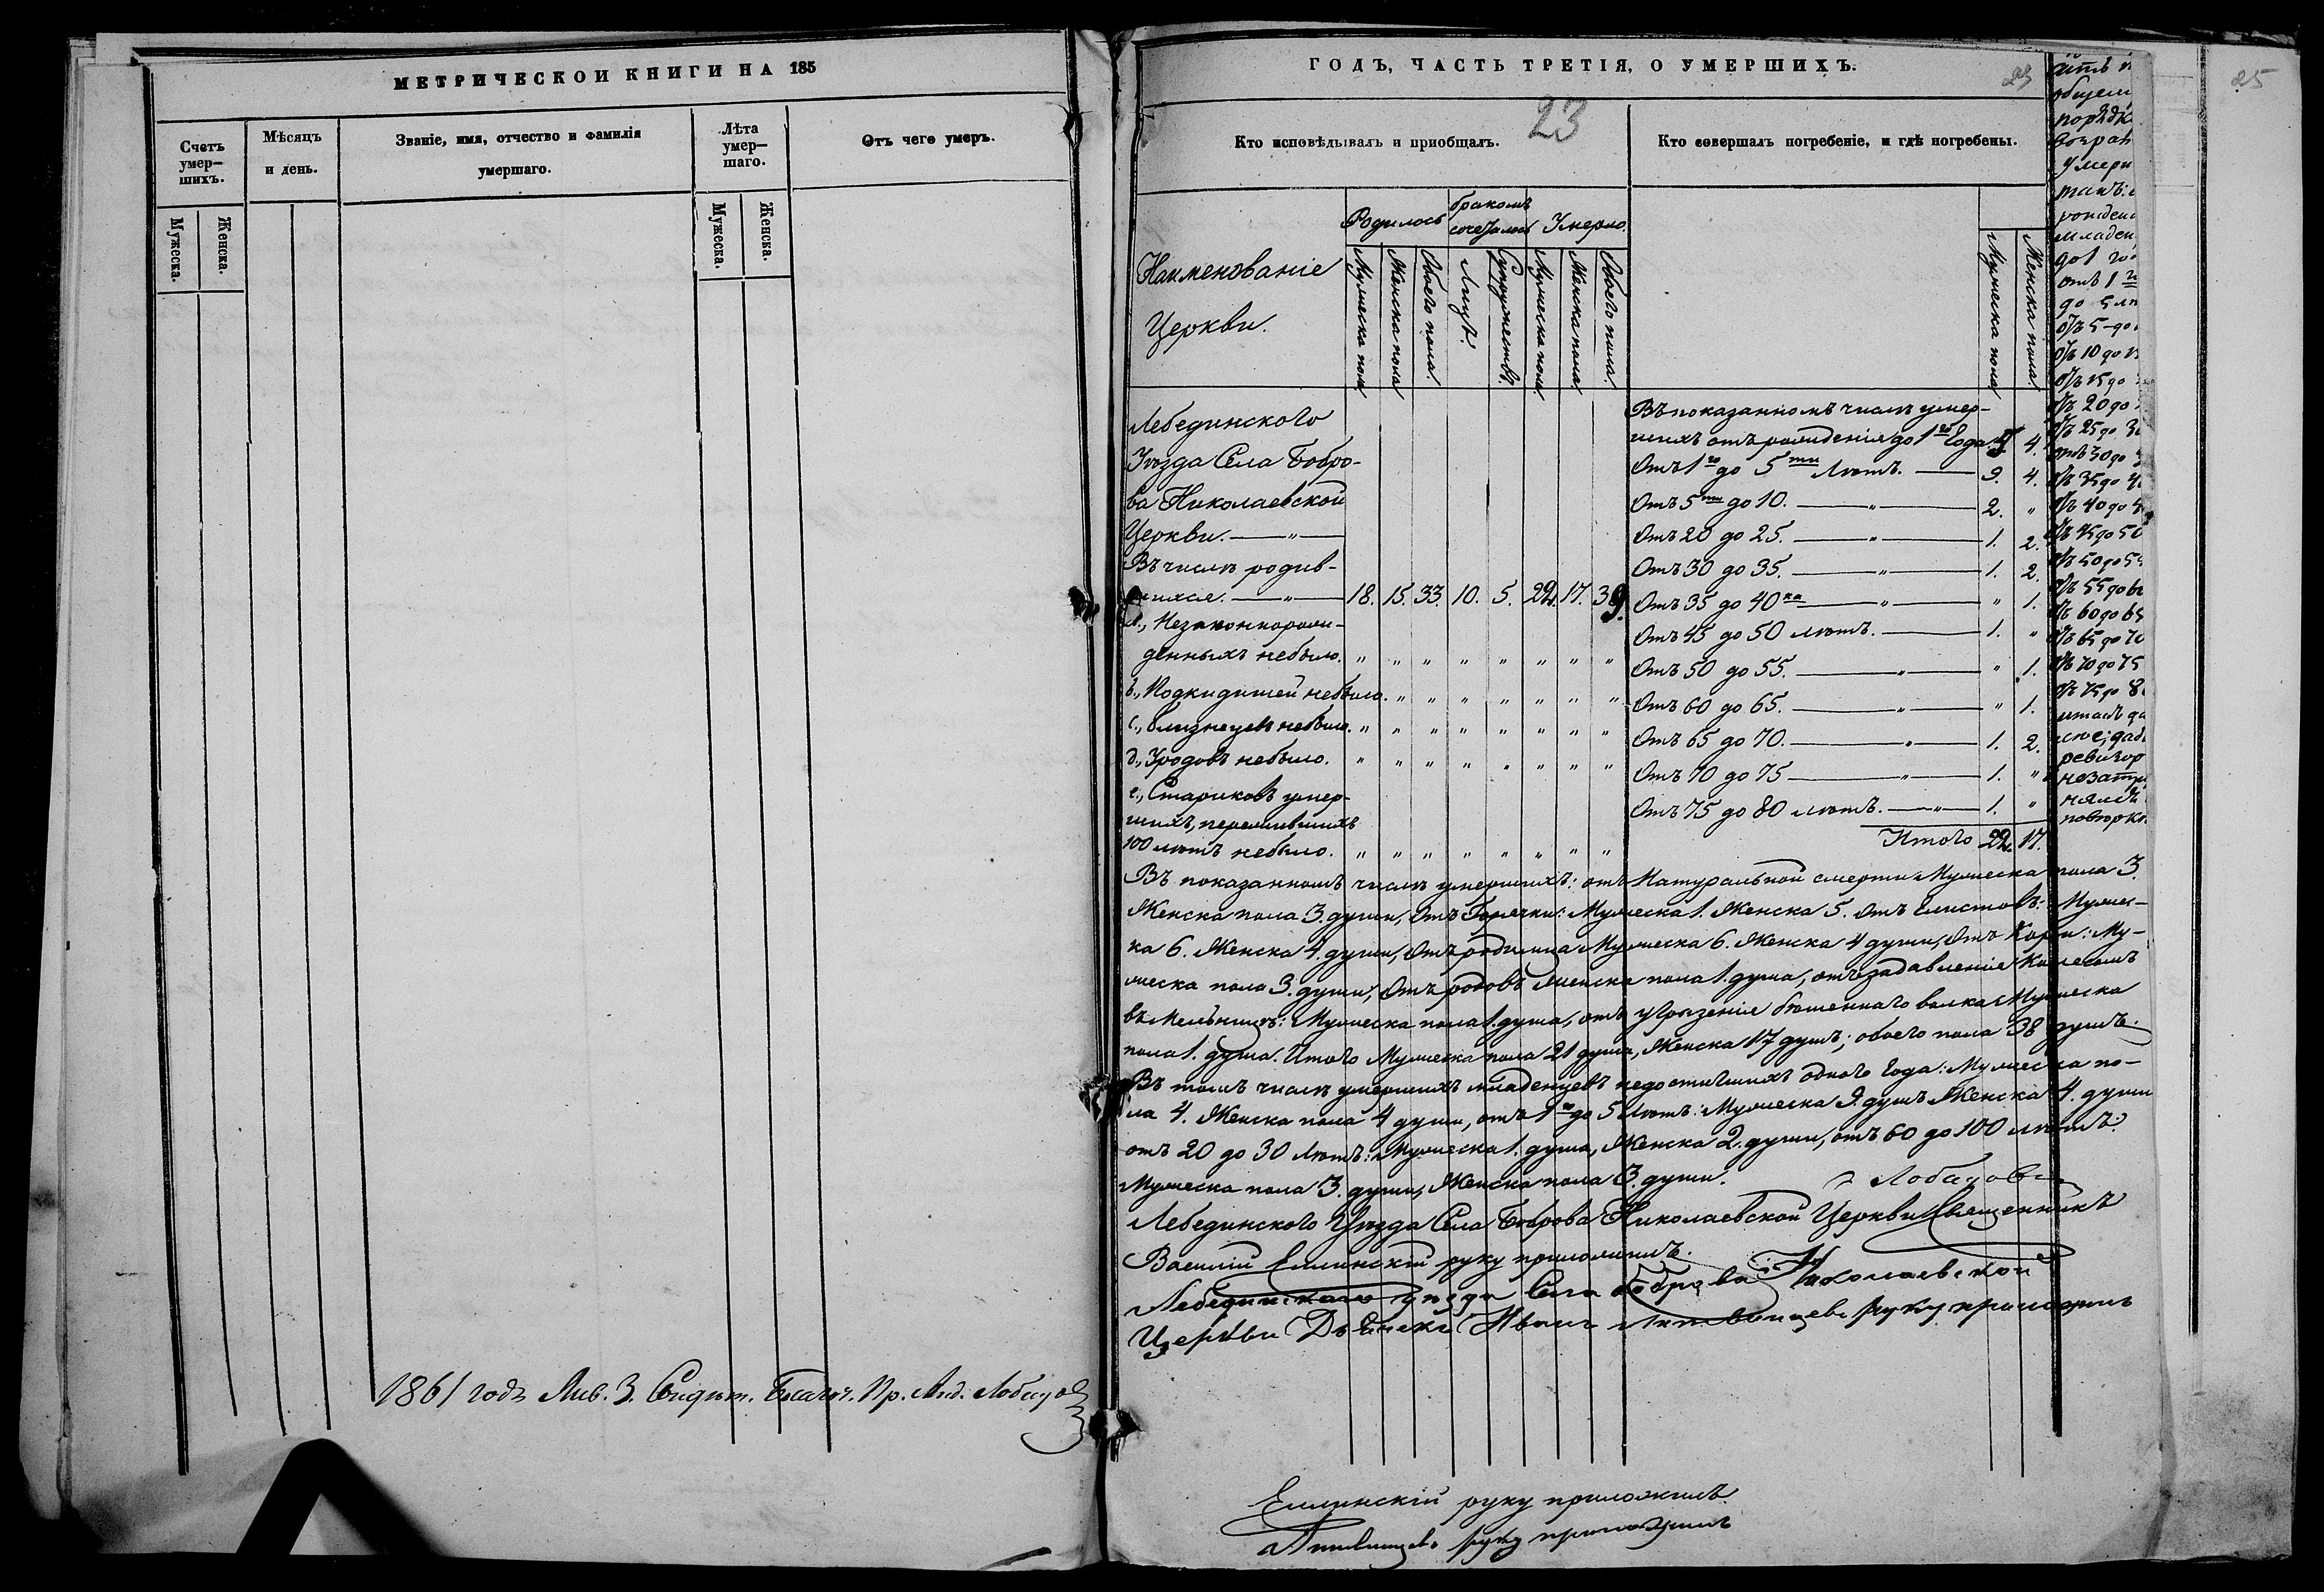 МЕТРИЧЕСКОЙ КНИГИ НА 185
Счетъ умер-шихъ.
Мѣсяцъ и день.
Званіе, имя, отчество и фамилія умершаго.
Лѣта умер-шаго.
Отъ чего умеръ.
Мужеска.
Женска.
Мужеска.
Женска.
1861 годъ Янв. 3. Свидѣт. Благоч. Пр. Анд. Лобицов
ГОДЪ, ЧАСТЬ ТРЕТІЯ, О УМЕРШИХЪ.
23
25
Кто исповѣдывалъ и приобщалъ.
23
Кто совершалъ погребеніе, и гдѣ погребены.
Наименованіе
Церкви.
Родилось
бракомъ сочеталось
Умерло
Мужеска пола
Женска пола
Обоего пола.
Лицъ.
Супружествъ.
Мужеска пола
Женска пола.
Обоего пола.
Мужеска пола
Женска пола.
Лебединскаго
Уѣзда Села Бобро-
ва Николаевской
Церкви. — „ —
Въ числѣ родив-
шихся. — „ — 18. 15. 33. 10. 5. 22. 17. 39.
а., Незаконнорож-
денныхъ небыло. „ „ „ „ „ „ „ „
b., Подкидышей небыло. „ „ „ „ „ „ „
c., близнецевъ небыло. „ „ „ „ „ „ „ „
d., Уродовъ небыло. „ „ „ „ „ „ „ „
e., Стариковъ умер-
шихъ, пережившихъ
100 лѣтъ небыло. „ „ „ „ „ „ „ „
Въ показанномъ числѣ умер-
шихъ отъ рожденія до 1го Года 5 4.
Отъ 1го до 5ти Лѣтъ. — 9. 4.
Отъ 5ти до 10. — „ — 2. „
Отъ 20 до 25. — „ — 1. 2.
Отъ 30 до 35. — „ — 1. 2.
Отъ 35 до 40ка — „ — „ 1.
Отъ 45 до 50 лѣтъ. — 1. „
Отъ 50 до 55. — „ — „ 1.
Отъ 60 до 65. — „ — „ 1.
Отъ 65 до 70. — „ — 1. 2.
Отъ 70 до 75 — „ — 1. „
Отъ 75 до 80 лѣтъ. — „ — 1. „
Итого 22. 17.
Въ показанномъ числѣ умершихъ: отъ Натуральной смерти Мужеска пола 3.
Женска пола 3. души, Отъ Горячки: Мужеска 1. Женска 5. Отъ Глистовъ: Мужес-
ка 6. Женска 4. души, Отъ родимца Мужеска 6. Женска 4 души, Отъ Кори: Му-
жеска пола 3. души, Отъ родовъ женска пола 1. душа, отъ задавленіе Колесомъ
въ Мельницѣ: Мужеска пола 1. душа, отъ угрызеніе бѣшеннаго волка Мужеска
пола 1. душа. Итого Мужеска пола 21 душа, Женска 17 душъ; обоего пола 38 душъ.
Въ томъ числѣ умершихъ младенцевъ недостигшихъ одного Года: Мужеска по-
ла 4. Женска пола 4 души, отъ 1го до 5 Лѣтъ: Мужеска 9. душъ Женска 4. души
отъ 20 до 30 Лѣтъ: Мужеска 1. душа, Женска 2. души, отъ 60 до 100 лѣтъ:
Мужеска пола 3. души, Женска пола 3. души.
Лебединскаго Уѣзда Села Боброва Николаевской Церкви Священникъ
Василій Еллинскій руку приложилъ.
Лебединскаго уѣзда Села Боброва Николаевской
Церкви Дьячекъ Иванъ Литвинцевъ руку приложилъ
Еллинскій руку приложилъ
Литвинцевъ руку приложилъ
общем
порядк
возрас
умерш
такъ:
рожден
младен
до 1 го
отъ 1 го
до 5 лѣ
отъ 5 до
отъ 10 до 1
отъ 15 до
отъ 20 до
отъ 25 до 3
отъ 30 до 3
отъ 35 до 4
отъ 40 до 4
отъ 45 до 50
отъ 50 до 55
отъ 55 до 6
отъ 60 до 65
отъ 65 до 70
отъ 70 до 75
отъ 75 до 8